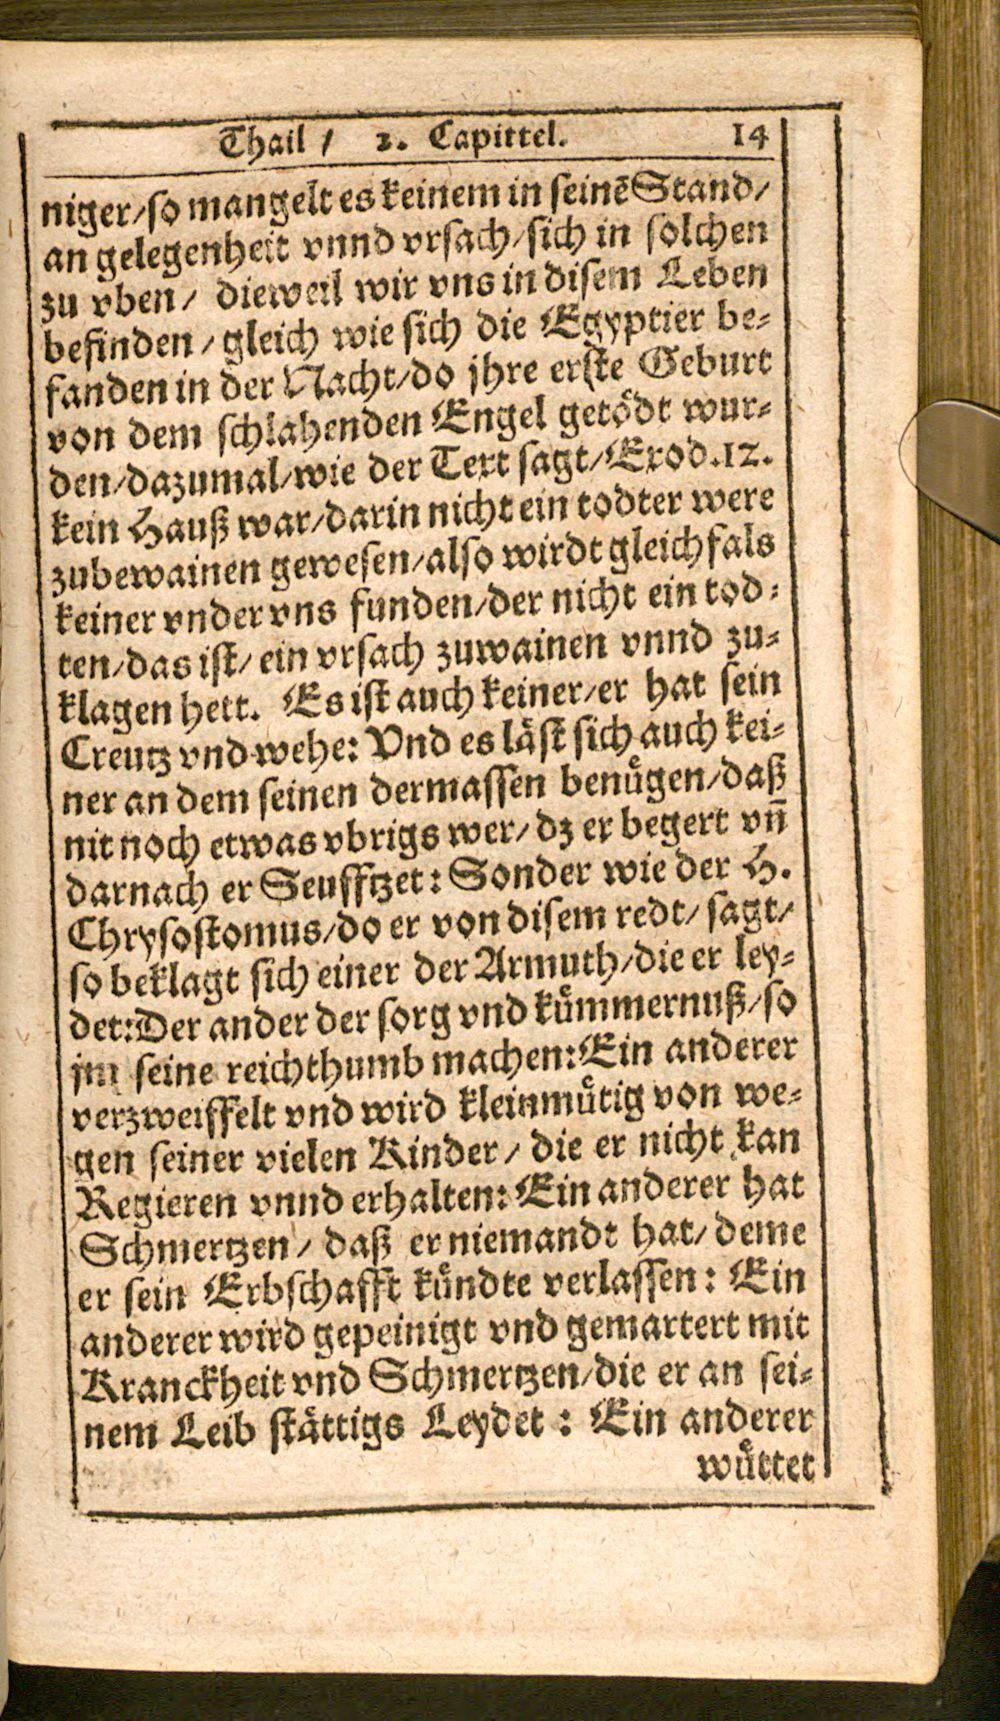 Thail / 2. Capittel. 14
niger/so mangelt es keinem in seinẽ Stand/
an gelegenheit vnnd vrsach/sich in solchen
zu vben/ dieweil wir vns in disem Leben
befinden/gleich wie sich die Egyptier be-
fanden in der Nacht/do jhre erste Geburt
von dem schlahenden Engel getödt wur-
den/dazumal/wie der Text sagt/Exod.12.
kein Hauß war/darin nicht ein todter were
zubewainen gewesen/also wirdt gleichfals
keiner vnder vns funden/der nicht ein tod-
ten/das ist/ ein vrsach zuwainen vnnd zu-
klagen hett. Es ist auch keiner/er hat sein
Creutz vnd wehe: Vnd es läst sich auch kei-
ner an dem seinen dermassen benügen/daß
nit noch etwas vbrigs wer/ dz er begert vn̄
darnach er Seufftzet: Sonder wie der H.
Chrysostomus/do er von disem redt/ sagt/
so beklagt sich einer der Armuth/die er ley-
det: Der ander der sorg vnd kümmernuß/so
jm seine reichthumb machen: Ein anderer
verzweiffelt vnd wird kleinmütig von we-
gen seiner vielen Kinder/ die er nicht kan
Regieren vnnd erhalten: Ein anderer hat
Schmertzen/ daß er niemandt hat/ deme
er sein Erbschafft kündte verlassen: Ein
anderer wird gepeinigt vnd gemartert mit
Kranckheit vnd Schmertzen/die er an sei-
nem Leib stättigs Leydet: Ein anderer
wüttet